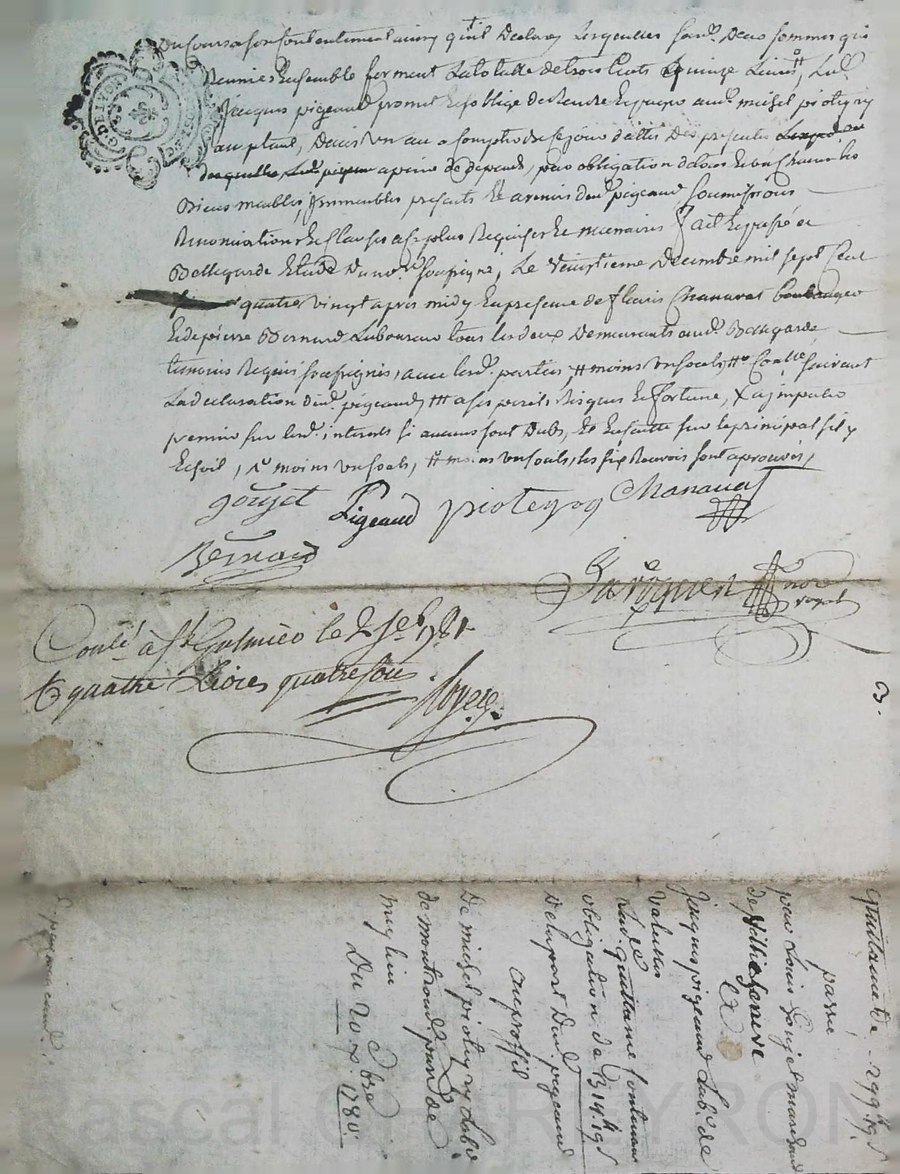 du cours a son contentement ainsy qu'il declare, Lesquelles sand. deux sommes qui
Reunies Ensemble forment la totalle de trois Cents quinze Livres, Led.
Jacques pigeaud promet et s'oblige de Rendre et payer aud. michel pioteyry
acceptant, dans un an a compter de ce jour datte des presentes
a peine de depends, par obligation de tous et un Chacun les
Biens meubles, Immeubles presents et avenir dud. pigeaud soumissions
Renonciations et Clauses a ce plus Requises et necessaires fait et passé a
Bellegarde Etude du no.re soussigné, Le vingtieme decembre mil sept Cent
quatre vingt apres midy En presence de fleuris Chanavat boulanger
et de pierre Bernard Laboureur tous les deux demeurants aud. Bellegarde
temoins Requis soussignés, avec lesd. parties, # moins un sol, suivant
La declaration dud. pigeaud, a ses perils Risques et fortune, X a imputer
premier sur lesd. interets si aucuns sont dubs, et Ensuitte sur le principal s'il y
Echoit, moins un sol, moins un sol, les six Renvois sont aprouvés,
goujet Pigeaud pioteyry Chanavat
Bernard
no.re royal
Con.lé à St Galmier le 2 1781
R quatre Livres quatre sous
3.
Quittance de 299
passée
par Louis Goujet marchand
de Villie Geneve
A
Jacques pigeaud Lab.r de
valeilles
Lad. quittance contenant
obligation de 314
de la part dud. pigeaud
au proffit
De michel pioteyry Lab.r
de montrond par.sse de
meylieu
Du 20 xbre 1780
Pascal CHARLYRON